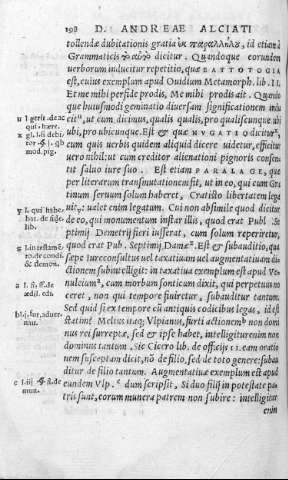 198 D. ANDREAE ALCIATI
tollendæ dubitationis gratia ἐκ παραλλήλυ, id etiam à
Grammaticis dicitur. Quandoque eorundem
uerborum inducitur repetitio, quæ BATTOTOGIA
est, cuius exemplum apud Ouidium Metamorph. lib. II.
Et me mihi perfide prodis, Me mihi prodis ait. Quando
que huiusmodi geminatio diuersam significationem indu
cit, ut cum dicimus, qualis qualis, pro qualiscunque ubi
ubi, pro ubicunque. Est & quæ NVGATE dicitur,
cum quis uerbis quidem aliquid dicere uidetur, efficitur
uero nihil: ut cum creditor alienationi pignoris consen
tit saluo iure suo. Est etiam PARALAGE, quæ
per literarum transmutationem fit, ut in eo, qui cum Gra
tinum seruum solum haberet, Cratisto libertatem lega
uit: ualet enim legatum. Cui non absimile quod dicitur
de eo, qui monumentum instar illis, quod erat Publ. Se
ptimij Demetrij fieri iusserat, cum solum reperiretur,
quod erat Pub. Septimij Damæ. Est & subauditio, quæ
sæpe iureconsultus uel taxatiuam uel augmentatiuam di
ctionem subintelligit: in taxatiua exemplum est apud Ve
nuleium, cum morbum sonticum dixit, qui perpetuus no
ceret, non qui tempore finiretur, subauditur tantum.
Sed quid si ex tempore
statimé Melius itaq; Vlpianus, furti actionem non domi
nus rei surreptæ, sed & ipse habet, intelligitur enim non
dominus tantum. sic Cicero lib. de officijs II. eam oratio
nem susceptam dicit, nõ de filio, sed de toto genere: subau
ditur de filio tantum. Augmentatiuæ exemplum est apud
eundem Vlp. dum scripsit, Si duo filij in potestate pa
tris sunt, eorum munera patrem non subire: intelligitur
enim
u l. geris. de ac
qui. hære.
x gl. l. si debi
tor
mod. pig.
y l. qui habe
bat. de
lib.
z l. in testamē
to. de condi.
& demon.
a l. fi. ff. de
ædil. edi.
b l. j. fur. aduer.
nau.
c l. iij
mun.